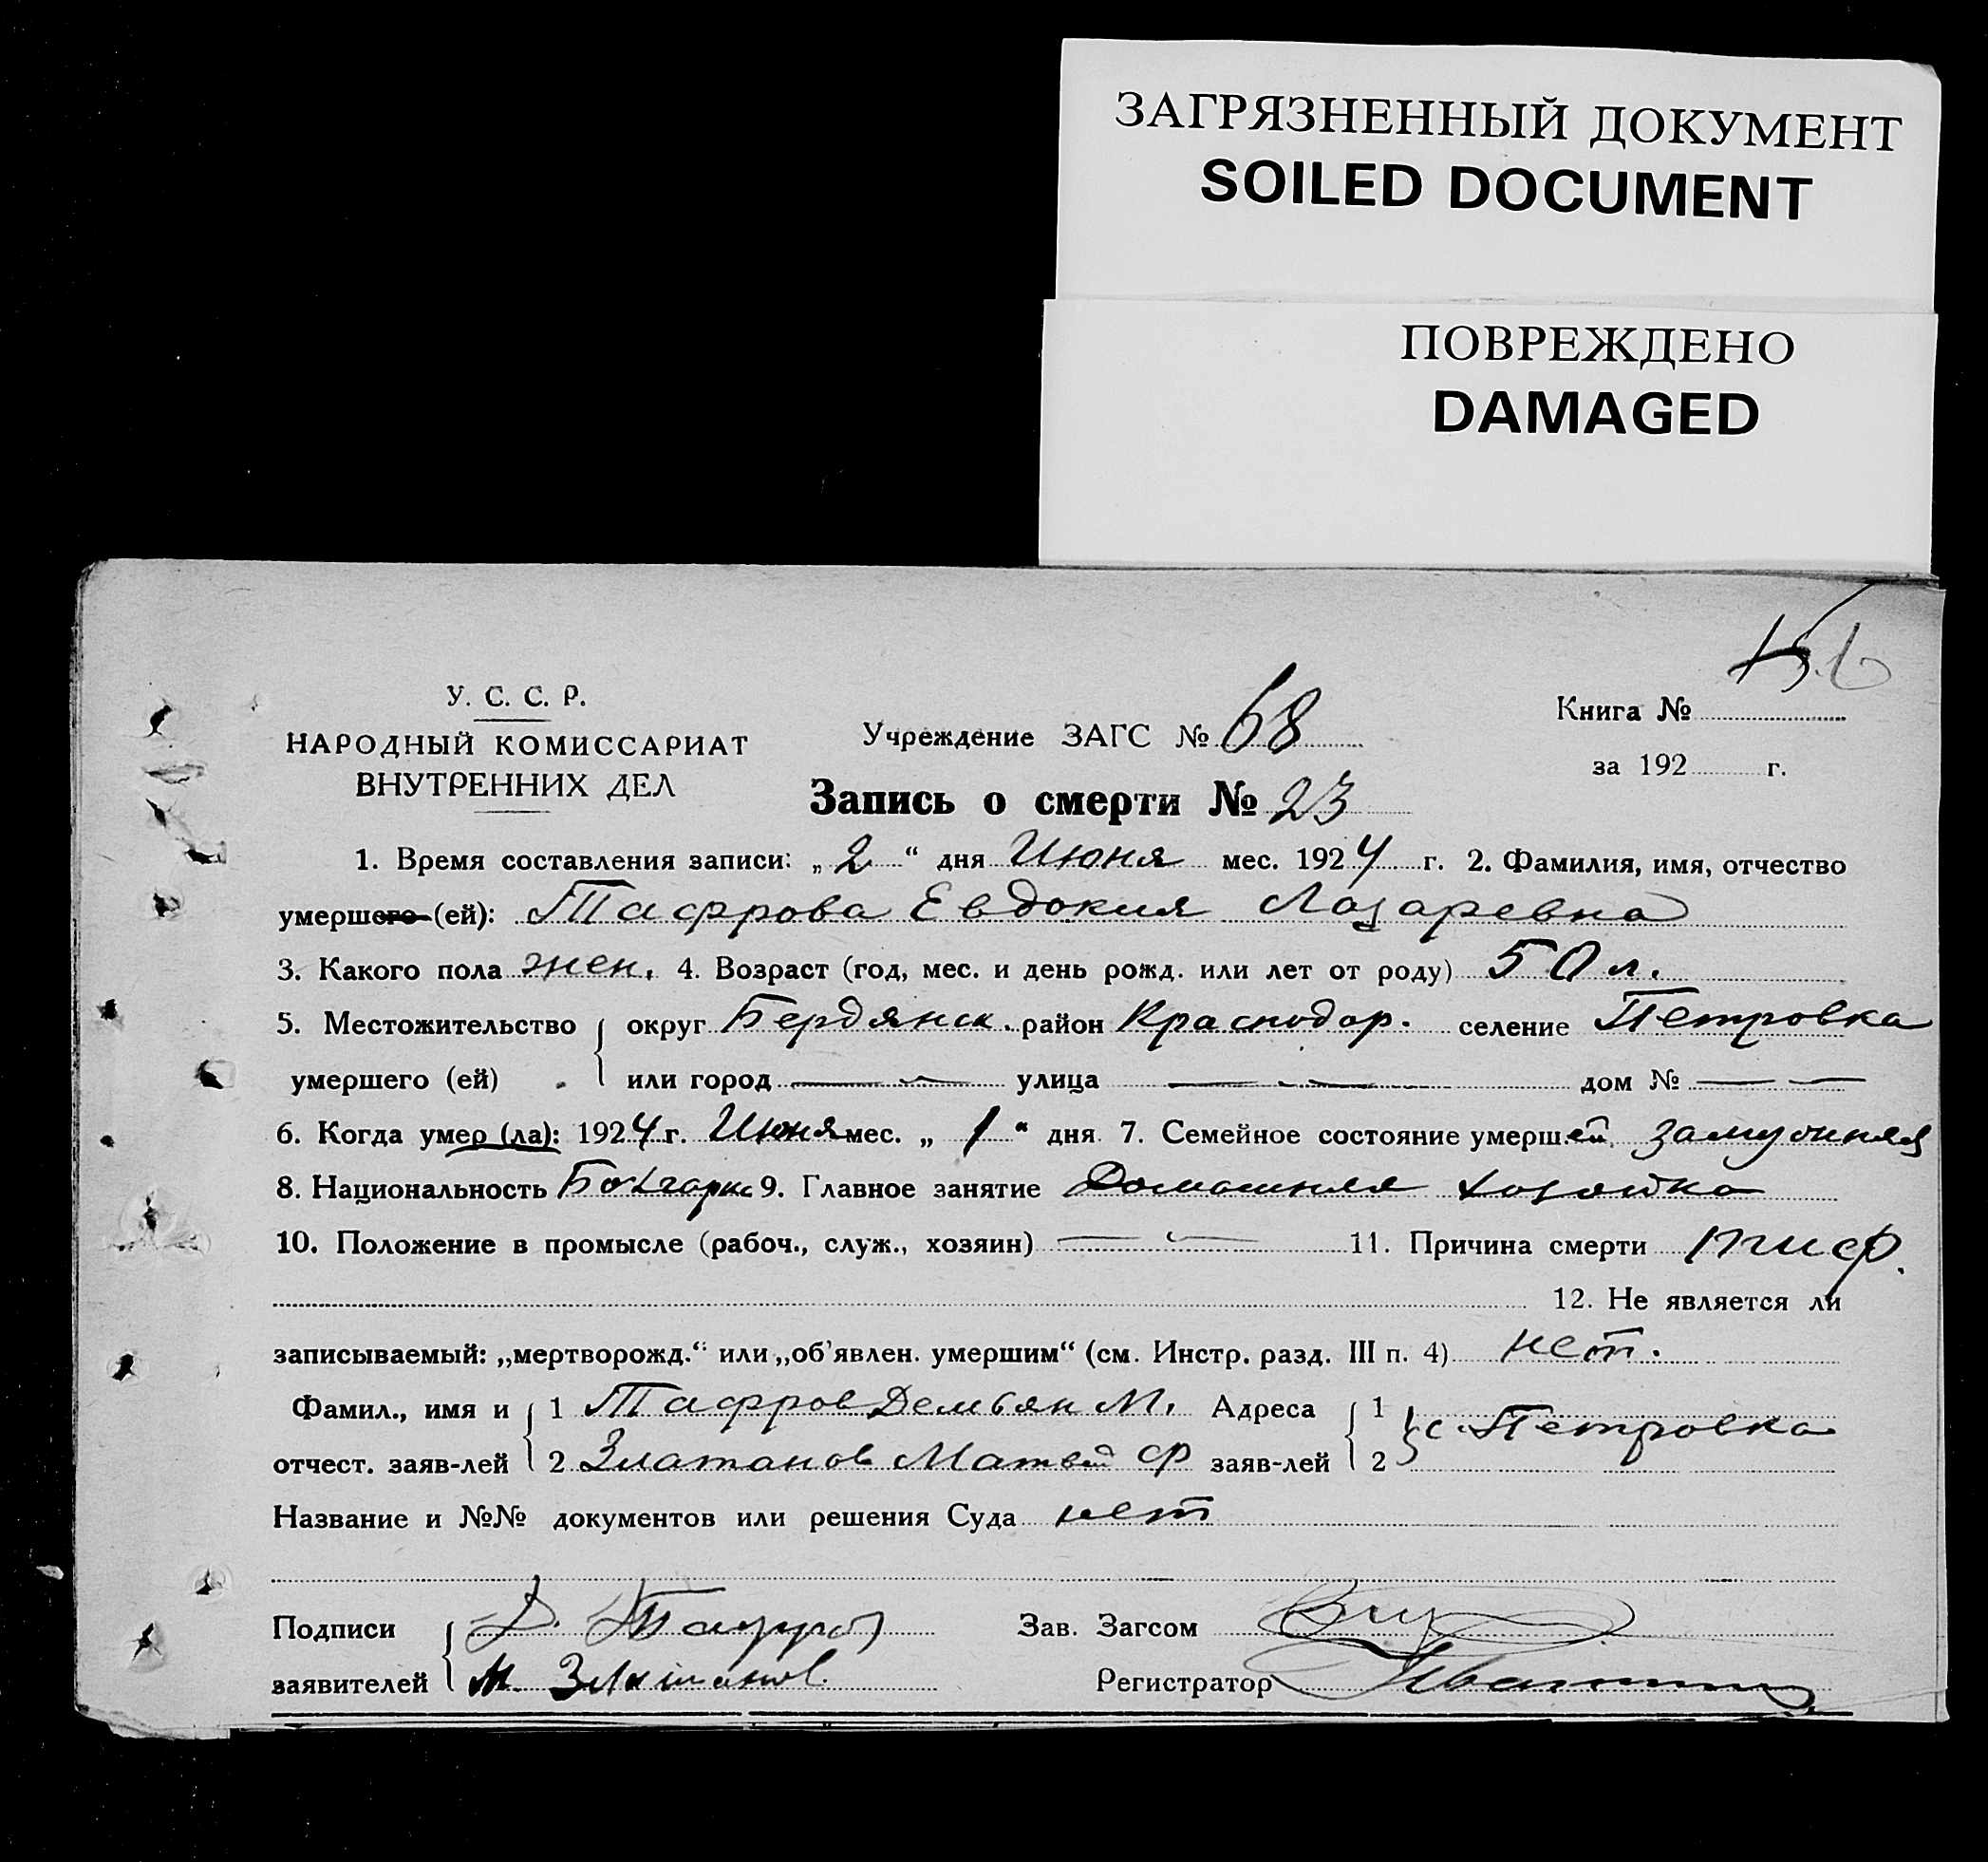 ЗАГРЯЗНЕННЫЙ ДОКУМЕНТ
SOILED DOCUMENT
ПОВРЕЖДЕНО
DAMAGED
У. С. С. Р.
НАРОДНЫЙ КОМИССАРИАТ
ВНУТРЕННИХ ДЕЛ
Учреждение ЗАГС № 68
Книга №
за 192 г.
Запись о смерти № 23
1. Время составления записи: „2“ дня Июня мес. 1924 г. 2. Фамилия, имя, отчество
умершего (ей): Тафрова Евдокия Лазаревна
3. Какого пола жен. 4. Возраст (год, мес. и день рожд. или лет от роду) 50 л.
5. Местожительство округ Бердянск. район Краснодор. селение Петровка
умершего (ей) или город — улица — дом № —
6. Когда умер (ла): 1924 г. Июня мес. „1“ дня 7. Семейное состояние умерш.ей замужняя
8. Национальность 9. Главное занятие Домашняя хозяйка
10. Положение в промысле (рабоч., служ., хозяин) — 11. Причина смерти тиф.
12. Не является ли
записываемый: „мертворожд.“ или „об'явлен. умершим“ (см. Инстр. разд. III п. 4) нет.
Фамил., имя и 1 Тафров Демьян М. Адреса 1 с. Петровка
отчест. заяв-лей 2 Златанов Матвей Ф заяв-лей 2
Название и №№ документов или решения Суда нет
Подписи Д. Тафров Зав. Загсом
заявителей М. Златанов. Регистратор